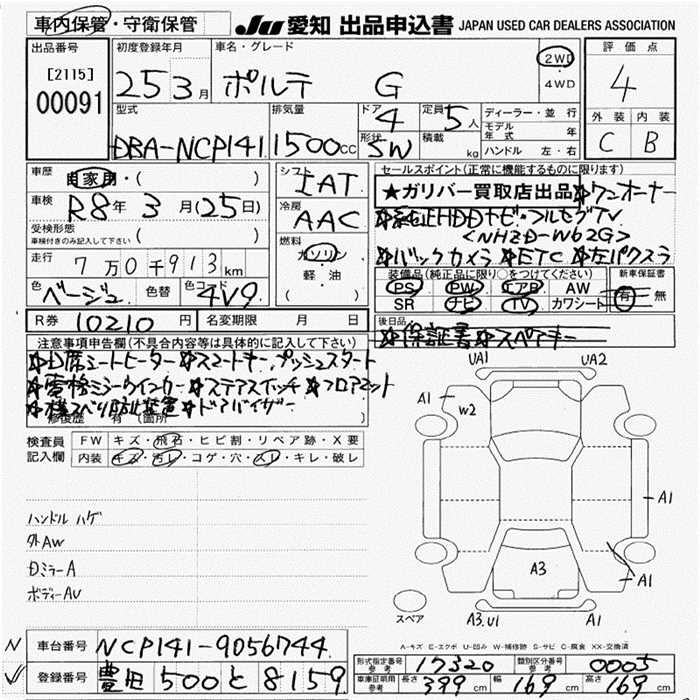 車内保管・守衛保管
JU 愛知 出品申込書 JAPAN USED CAR DEALERS ASSOCIATION
出品番号 初度登録年月 車名・グレード 評価点
[2115] 25 3月 ポルテ G 2WD 4
00091 4WD
型式 排気量 ドア 4 定員 5人 ディーラー・並行 外装 内装
モデル年式 年
DBA-NCP141 1500cc 形状 SW 積載 kg ハンドル 左・右 C B
車歴 自家用・( ) シフト IAT セールスポイント(正常に機能するものに限ります)
★ガリバー買取店出品 ☆ワンオーナー
車検 R8年 3月(25日) 冷房 AAC ☆純正HDDナビ・フルセグTV
<NHZD-W62G>
受検形態 ( )
車検付きのみ記入して下さい
燃料 ガソリン ☆バックカメラ ☆ETC ☆左パワスラ
走行 7万0千913km 軽・油 装備品(純正品に限り○をつけてください) 新車保証書
( ) PS PW エアB AW 有・無
色 ベージュ 色替 色コード 4V9 SR ナビ TV カワシート
R券 10210円 名変期限 月 日 後日品
☆保証書 ☆スペアキー
注意事項申告欄(不具合内容等は具体的に記入して下さい)
☆D席シートヒーター ☆スマートキー,プッシュスタート
☆電格ミラーウインカー ☆ステアスイッチ ☆フロアマット
☆横スベリ防止装置 ☆ドアバイザー
修復歴 有 (箇所
検査員 FW キズ・飛石・ヒビ割・リペア跡・X要
記入欄 内装 キズ・汚レ・コゲ・穴・スレ・キレ・破レ
UA1 UA2
A1 W2
A1
A3 A1
A3.U1 A1
スペア
ハンドル ハゲ
外AW
DミラーA
ボディーAU
A-キズ E-エクボ U-凹み W-補修跡 S-サビ C-腐食 XX-交換済
N 車台番号 NCP141-9056744
登録番号 豊田 500 と 8159
形式指定番号 参考 17320 類別区分番号 参考 0005
車庫証明用 参考 長さ 399cm 幅 169cm 高さ 169cm